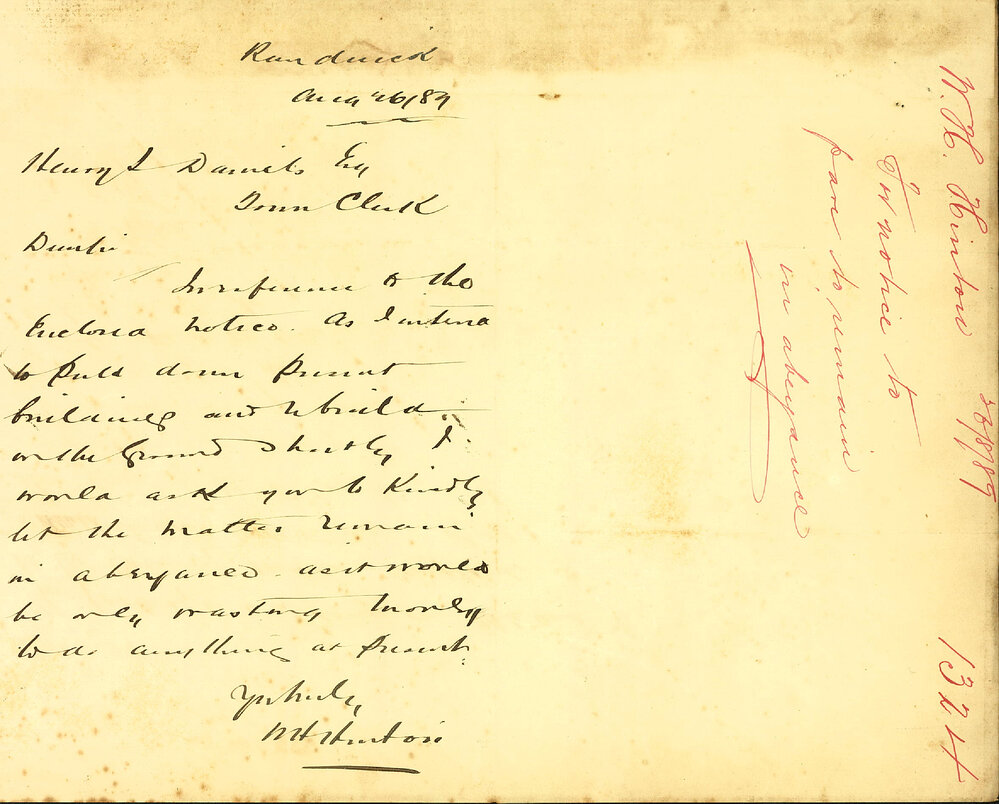 Randwick
Aug 26/89
Henry S Daniels Esq
Town Clerk
Dear Sir
In reference to the
Enclosed notice. As I intend
to pull down present
buildings and rebuild
on the Ground shortly, I
would ask you to Kindly
let the matter remain
in abeyance. as it would
be only wasting money
to do anything at present.
Yrs truly,
WH Hinton
W. H. Hinton 26/8/89 1324
for notice to
pave to remain
in abeyance